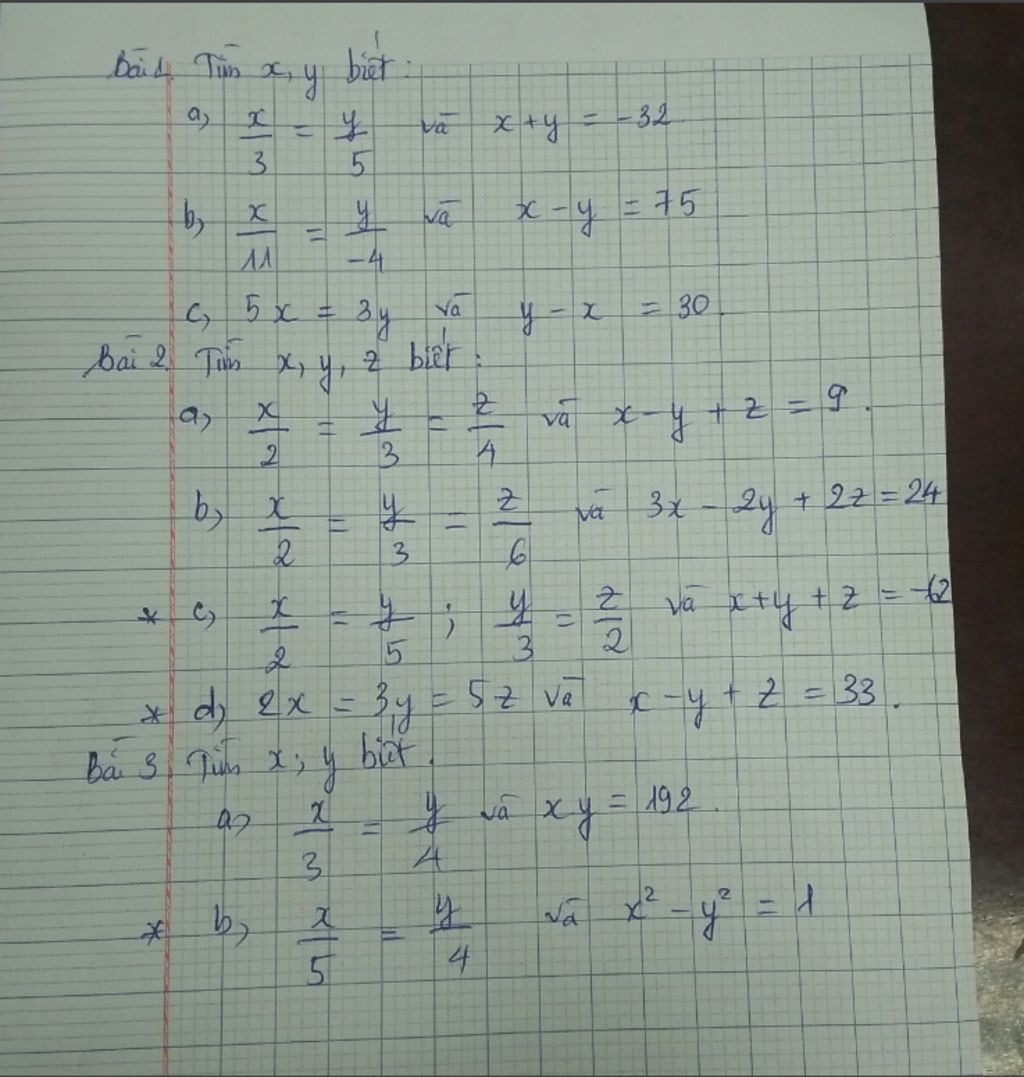 Bài 1. Tìm x, y biết:
a) x/3 = y/5 và x+y = -32
b) x/11 = y/-4 và x-y = 75
c) 5x = 3y và y - x = 30.
Bài 2. Tìm x, y, z biết:
a) x/2 = y/3 = z/4 và x-y+z = 9.
b) x/2 = y/3 = z/6 và 3x - 2y + 2z = 24
* c) x/2 = y/5 ; y/3 = z/2 và x+y+z =
* d) 2x = 3y = 5z và x-y+z = 33.
Bài 3. Tìm x; y biết.
a) x/3 = y/4 và xy = 192.
* b) x/5 = y/4 và x² - y² = 1